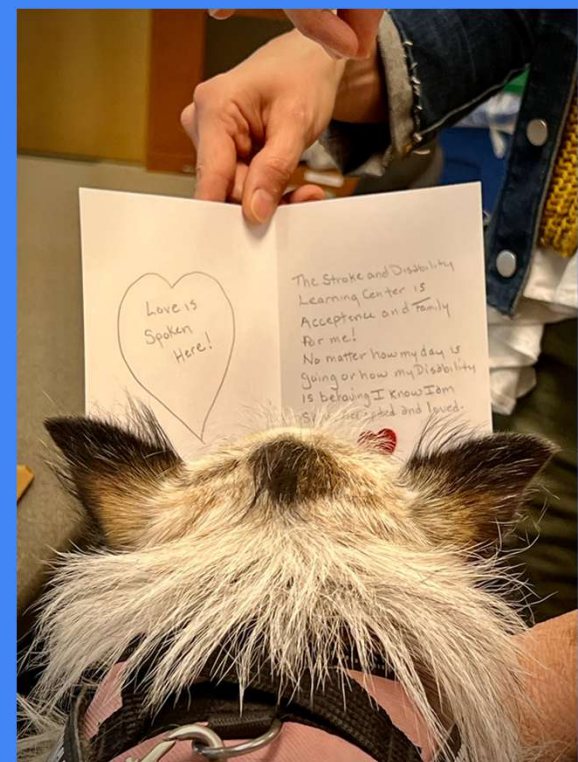 Love is
Spoken
Here!
The Stroke and Disability
Learning Center is
Acceptence and Family
For me!
No matter how my day is
going or how my Disability
is behaving I know I am
and loved.